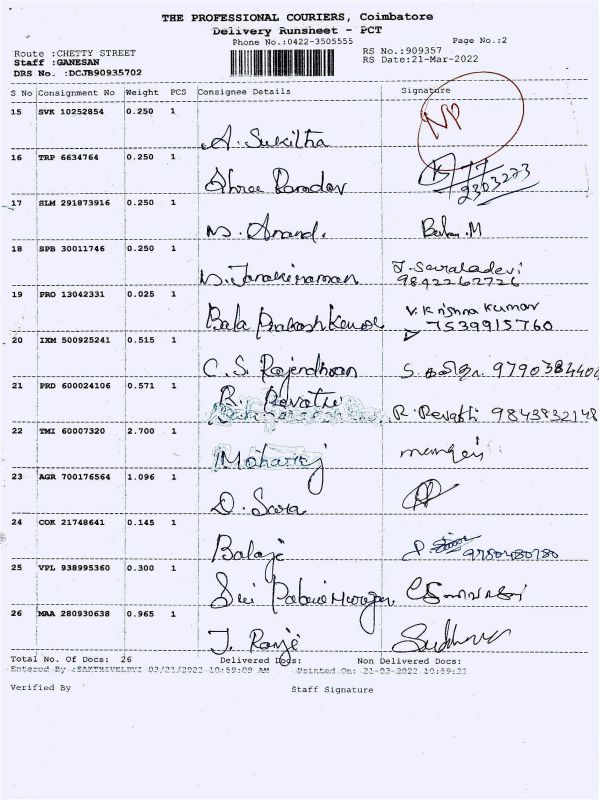 THE PROFESSIONAL COURIERS, Coimbatore
Delivery Runsheet - PCT
Phone No.:0422-3505555
Page No.:2
Route :CHETTY STREET
RS No.:909357
Staff :GANESAN
RS Date:21-Mar-2022
DRS No. :DCJB90935702
S No Consignment No Weight PCS Consignee Details Signature
15 SVK 10252854 0.250 1
A. Sukitha NP
16 TRP 6634764 0.250 1
Shree Ramdev
17 SLM 291873916 0.250 1
N. Anand.
18 SPB 30011746 0.250 1
N. Janakiraman J. Saraladevi
9842262726
19 PRO 13042331 0.025 1
Bala Prakash Kumar V. Krishna Kumar
7539915760
20 IXM 500925241 0.515 1
C. S. Rajendhran 9790384404
21 PRD 600024106 0.571 1
R. Revathi
R. Revathi 9843832148
22 TMI 60007320 2.700 1
Moharaj
23 AGR 700176564 1.096 1
D. Sara
24 COK 21748641 0.145 1
Balaji
25 VPL 938995360 0.300 1
26 MAA 280930638 0.965 1
J. Ranji
Total No. Of Docs: 26 Delivered Docs: Non Delivered Docs:
Entered By :SAKTHIVELPVI 03/21/2022 10:59:09 AM Printed On: 21-03-2022 10:59:21
Verified By Staff Signature